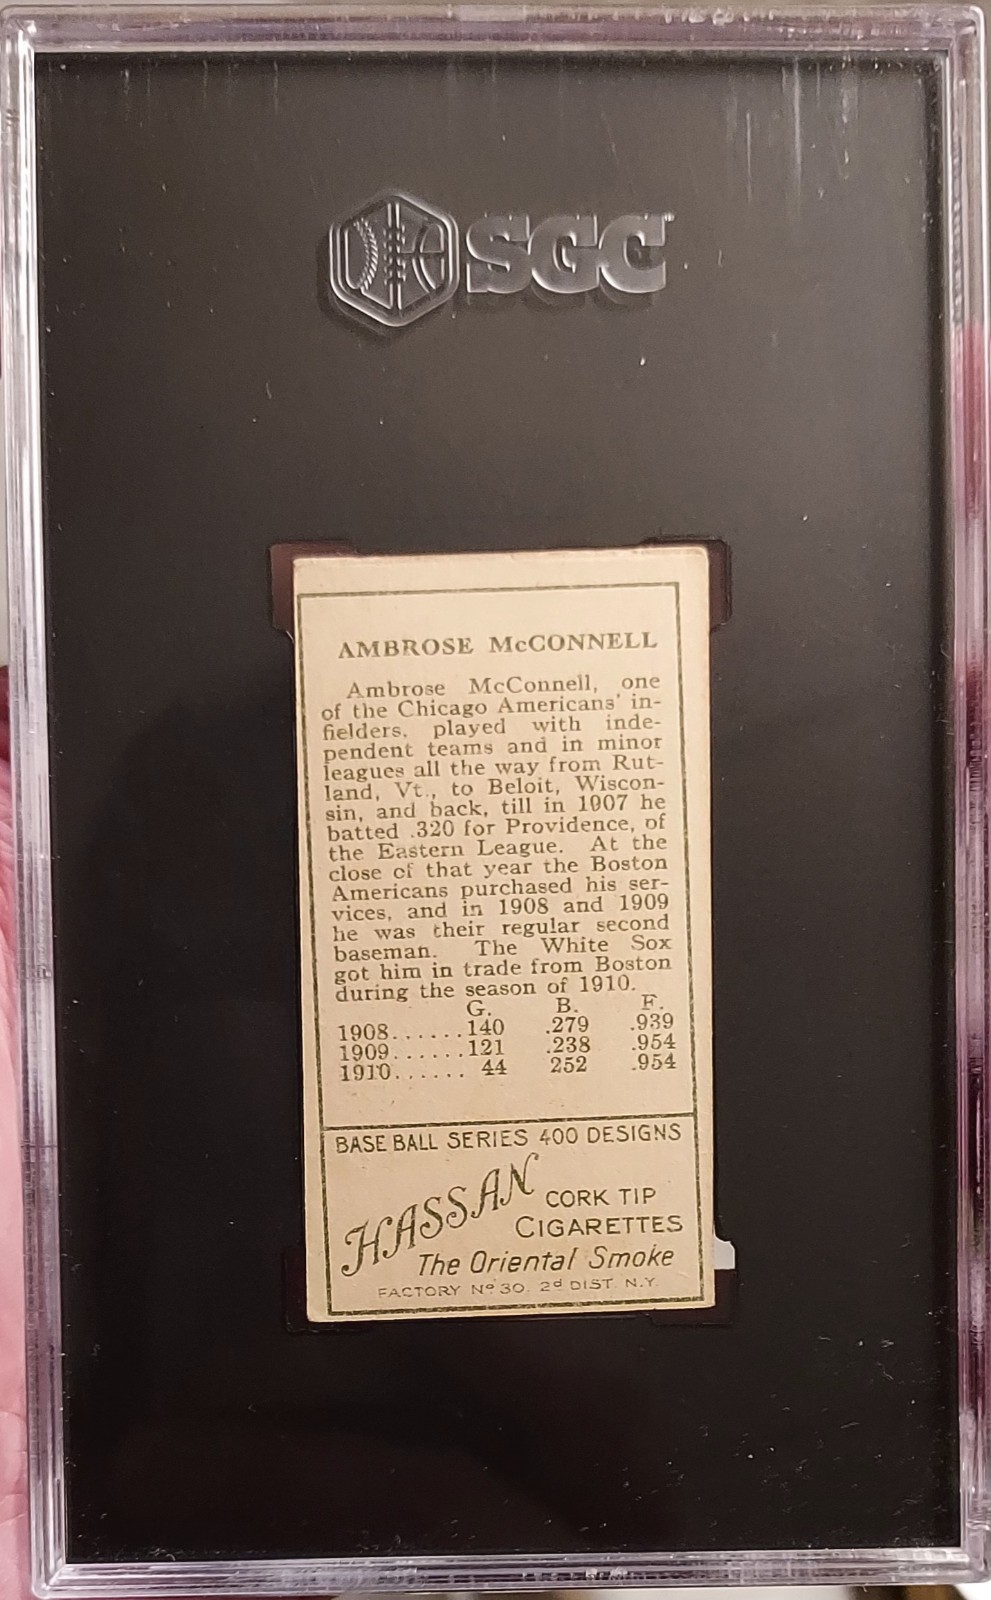 SGC
AMBROSE McCONNELL
Ambrose McConnell, one
of the Chicago Americans' in-
fielders, played with inde-
pendent teams and in minor
leagues all the way from Rut-
land, Vt., to Beloit, Wiscon-
sin, and back, till in 1907 he
batted .320 for Providence, of
the Eastern League. At the
close of that year the Boston
Americans purchased his ser-
vices, and in 1908 and 1909
he was their regular second
baseman. The White Sox
got him in trade from Boston
during the season of 1910.
G. B. F.
1908......140 .279 .939
1909......121 .238 .954
1910...... 44 252 .954
BASE BALL SERIES 400 DESIGNS
HASSAN
CORK TIP
CIGARETTES
The Oriental Smoke
FACTORY Nº 30. 2d DIST. N.Y.